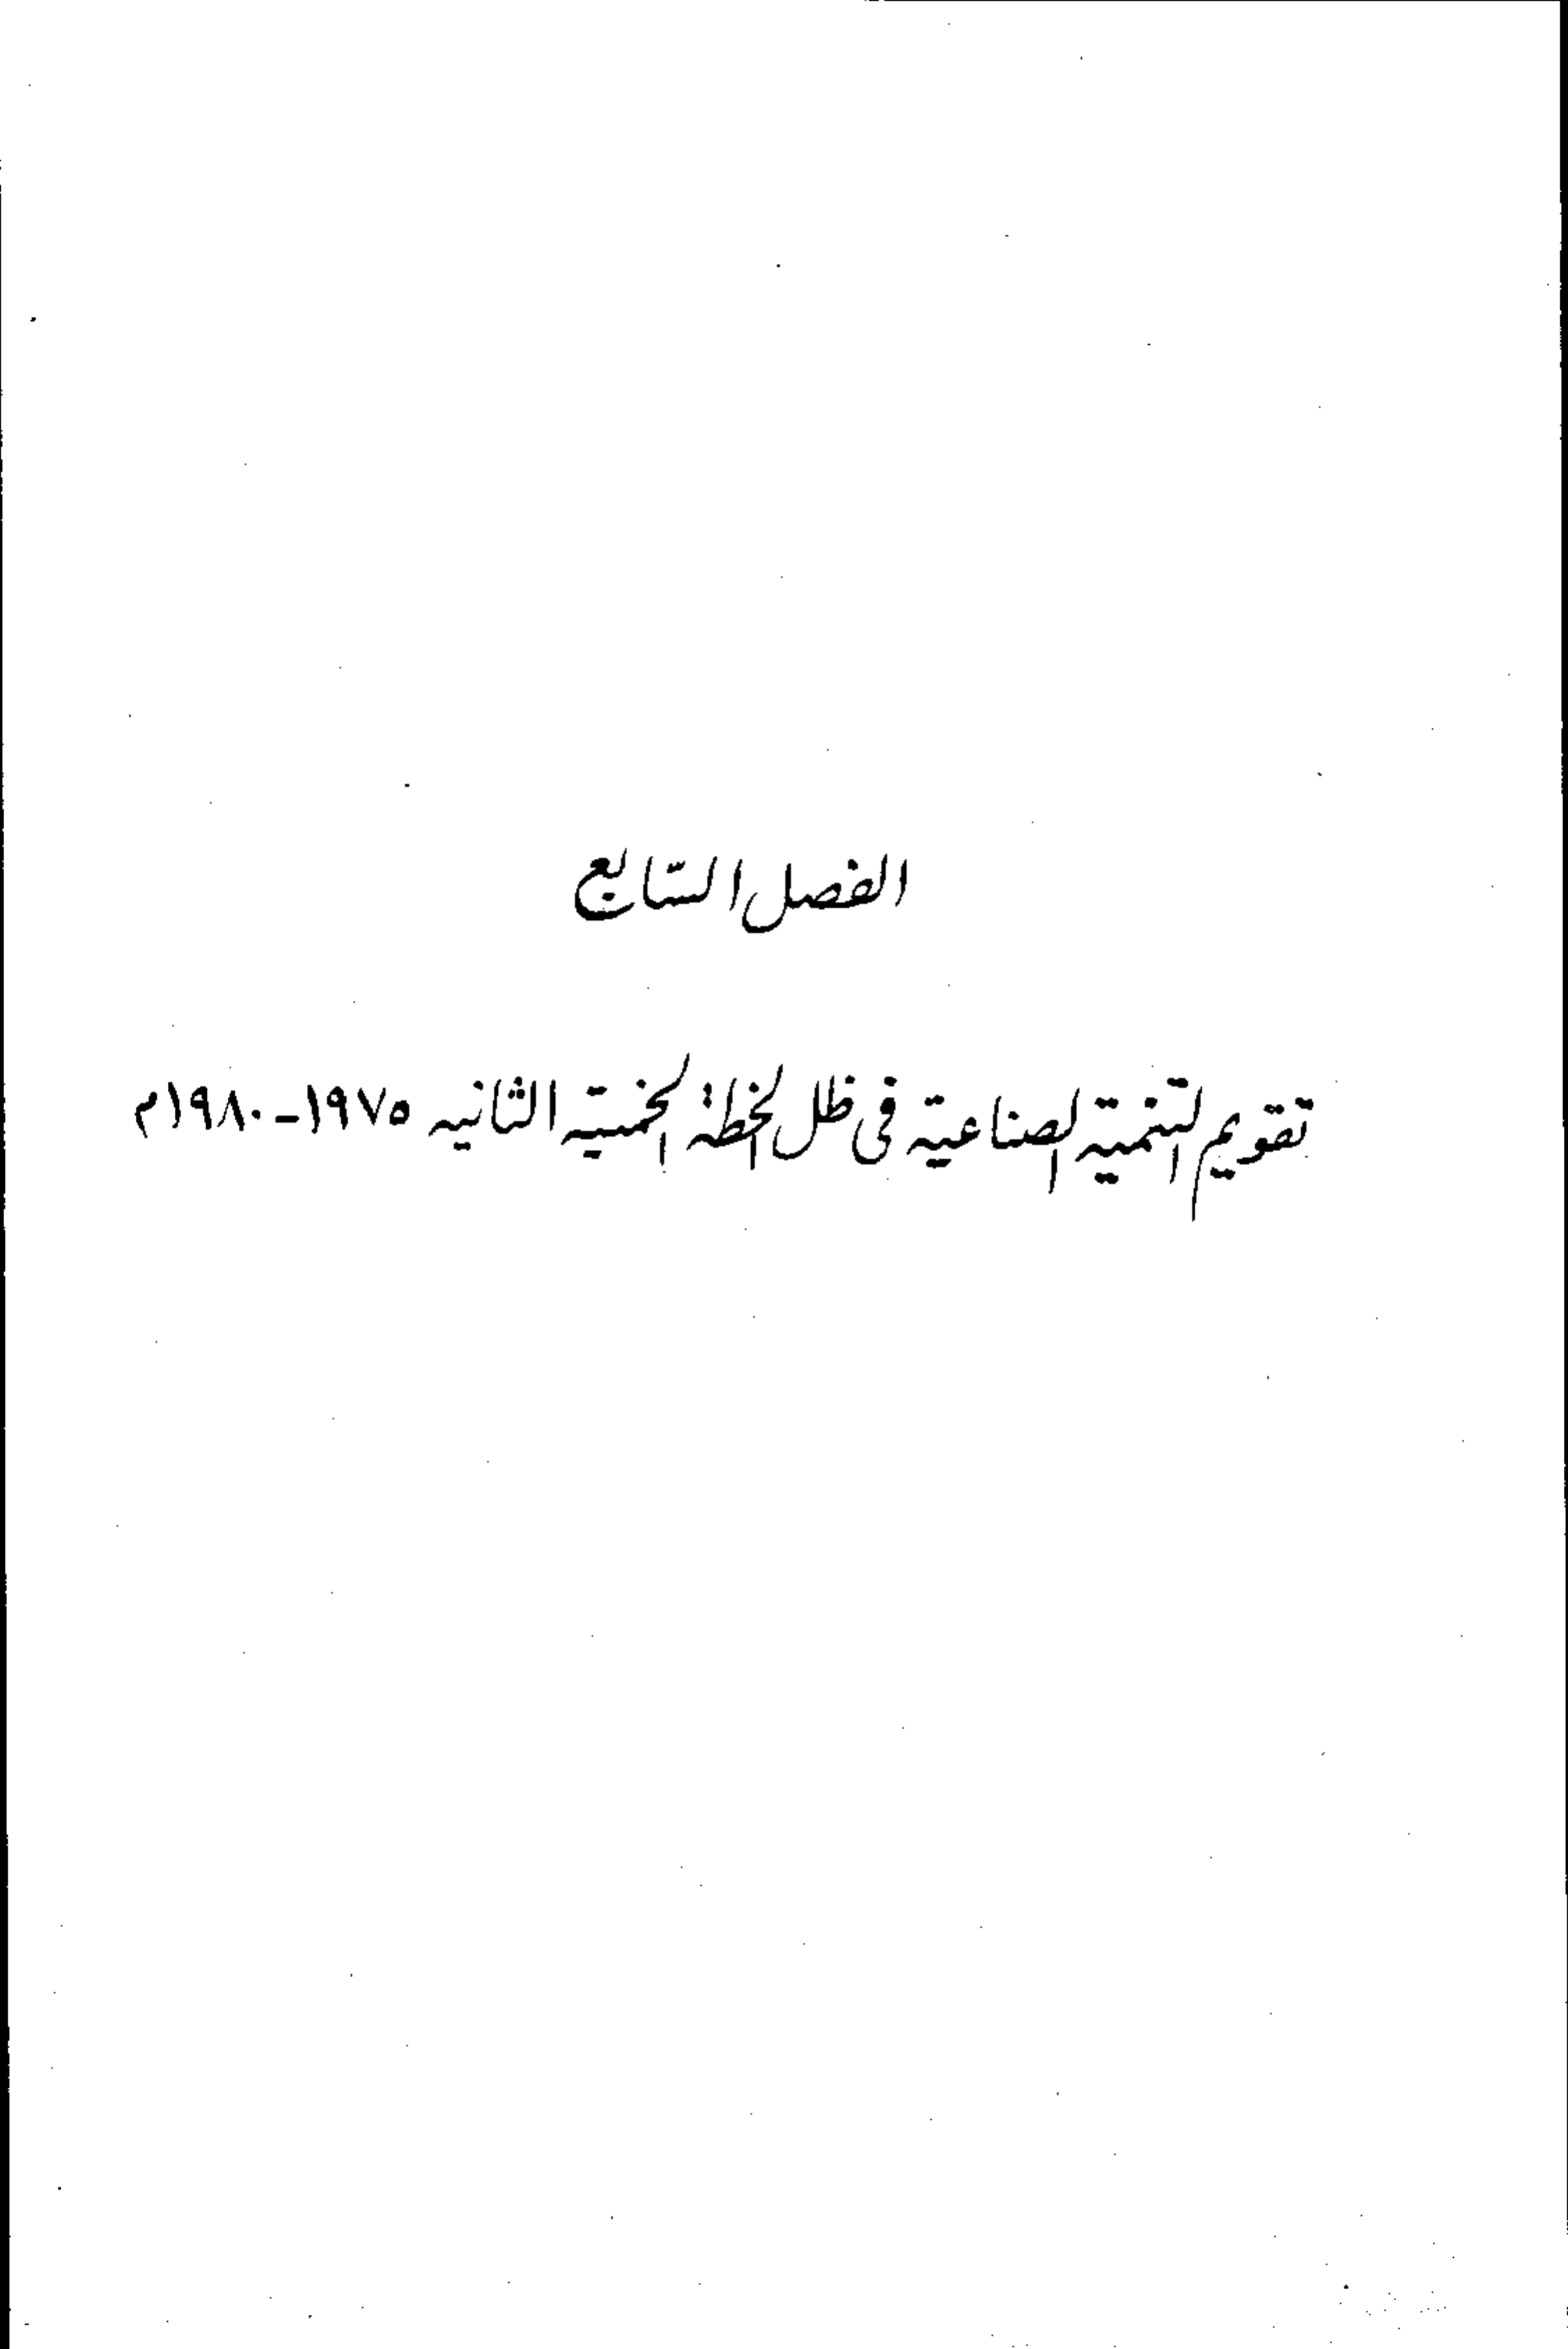 الفصل السّابع
تقويم التنمية الصناعية فى ظل الخطة الخمسية الثانيه ١٩٧٥-١٩٨٠م